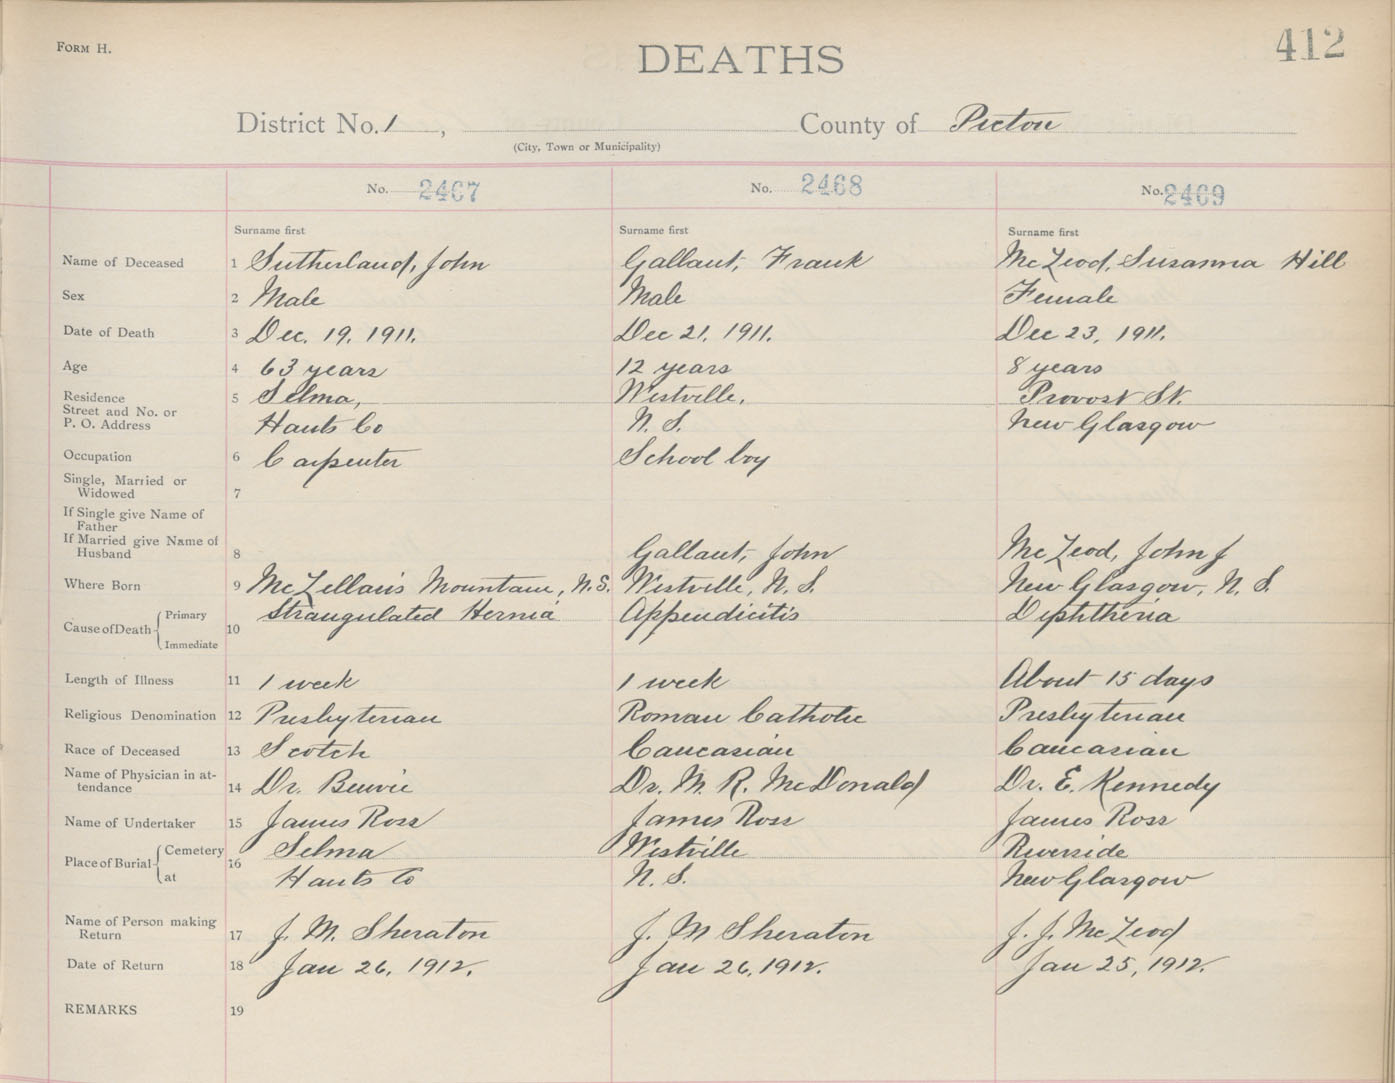 FORM H.
DEATHS
412
District No. 1 , County of Pictou
(City, Town or Municipality)
No. 2467 No. 2468 No. 2469
Surname first Surname first Surname first
Name of Deceased 1 Sutherland, John Gallant, Frank McLeod, Susanna Hill
Sex 2 Male Male Female
Date of Death 3 Dec. 19, 1911. Dec 21, 1911. Dec 23, 1911.
Age 4 63 years 12 years 8 years
Residence 5 Selma, Westville, Provost St.
Street and No. or
P. O. Address Hants Co N. S. New Glasgow
Occupation 6 Carpenter School boy
Single, Married or
Widowed 7
If Single give Name of
Father
If Married give Name of
Husband 8 Gallant, John McLeod, John J
Where Born 9 McLellan's Mountain, N.S. Westville, N. S. New Glasgow, N. S.
Cause of Death Primary 10 Strangulated Hernia Appendicitis Diphtheria
Immediate
Length of Illness 11 1 week 1 week About 15 days
Religious Denomination 12 Presbyterian Roman Catholic Presbyterian
Race of Deceased 13 Scotch Caucasian Caucasian
Name of Physician in at-
tendance 14 Dr. Dr. M. R. McDonald Dr. E. Kennedy
Name of Undertaker 15 James Ross James Ross James Ross
Place of Burial Cemetery 16 Selma Westville Riverside
at Hants Co N. S. New Glasgow
Name of Person making
Return 17 J. M. Sheraton J. M Sheraton J. J. McLeod
Date of Return 18 Jan 26, 1912. Jan 26, 1912. Jan 25, 1912.
REMARKS 19